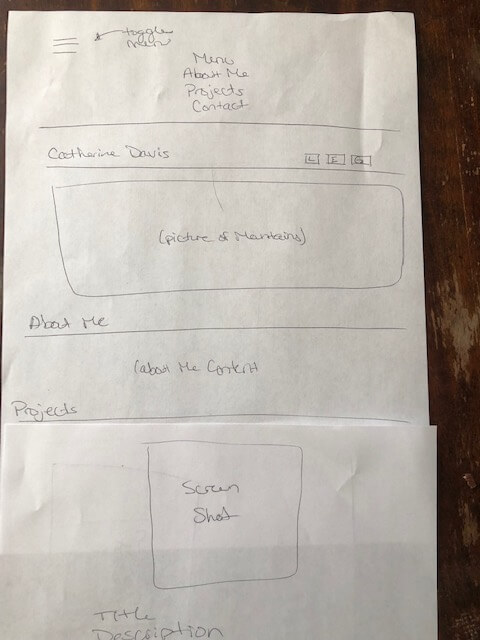 toggle
menu
Menu
About Me
Projects
Contact
Catherine Davis
L E G
(picture of Mountains)
About Me
(about Me Content
Projects
Screen
Shot
Title
Description